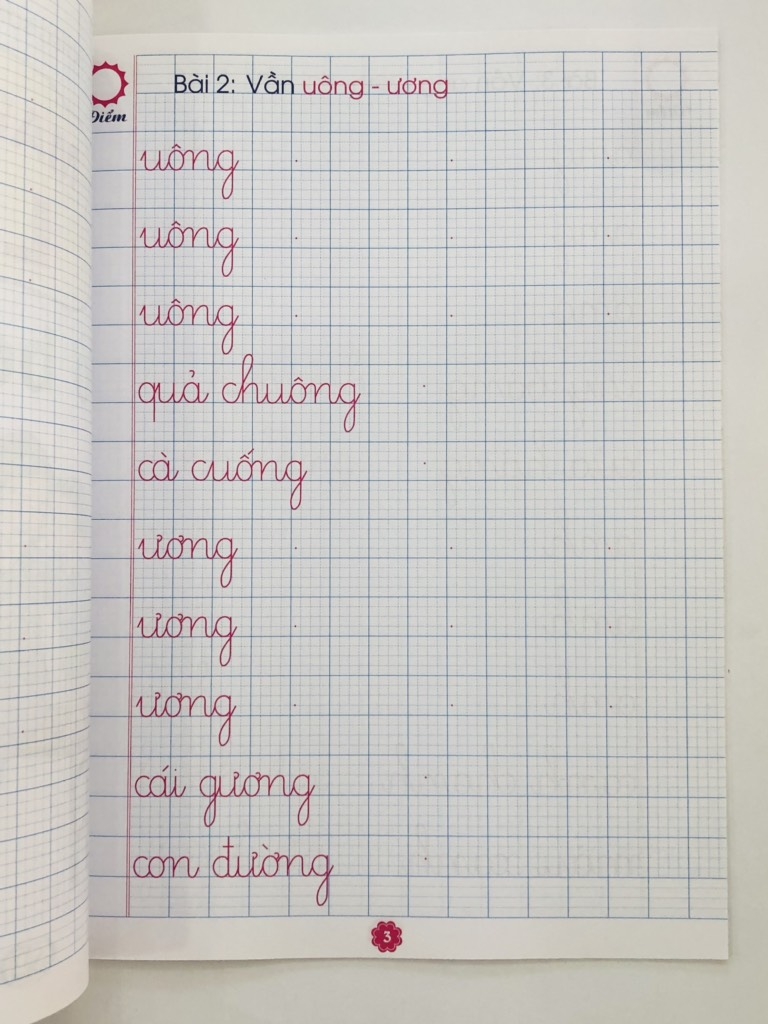 Bài 2: Vần uông - ương
Điểm
uông
uông
uông
quả chuông
cà cuống
ương
ương
ương
cái gương
con đường
3